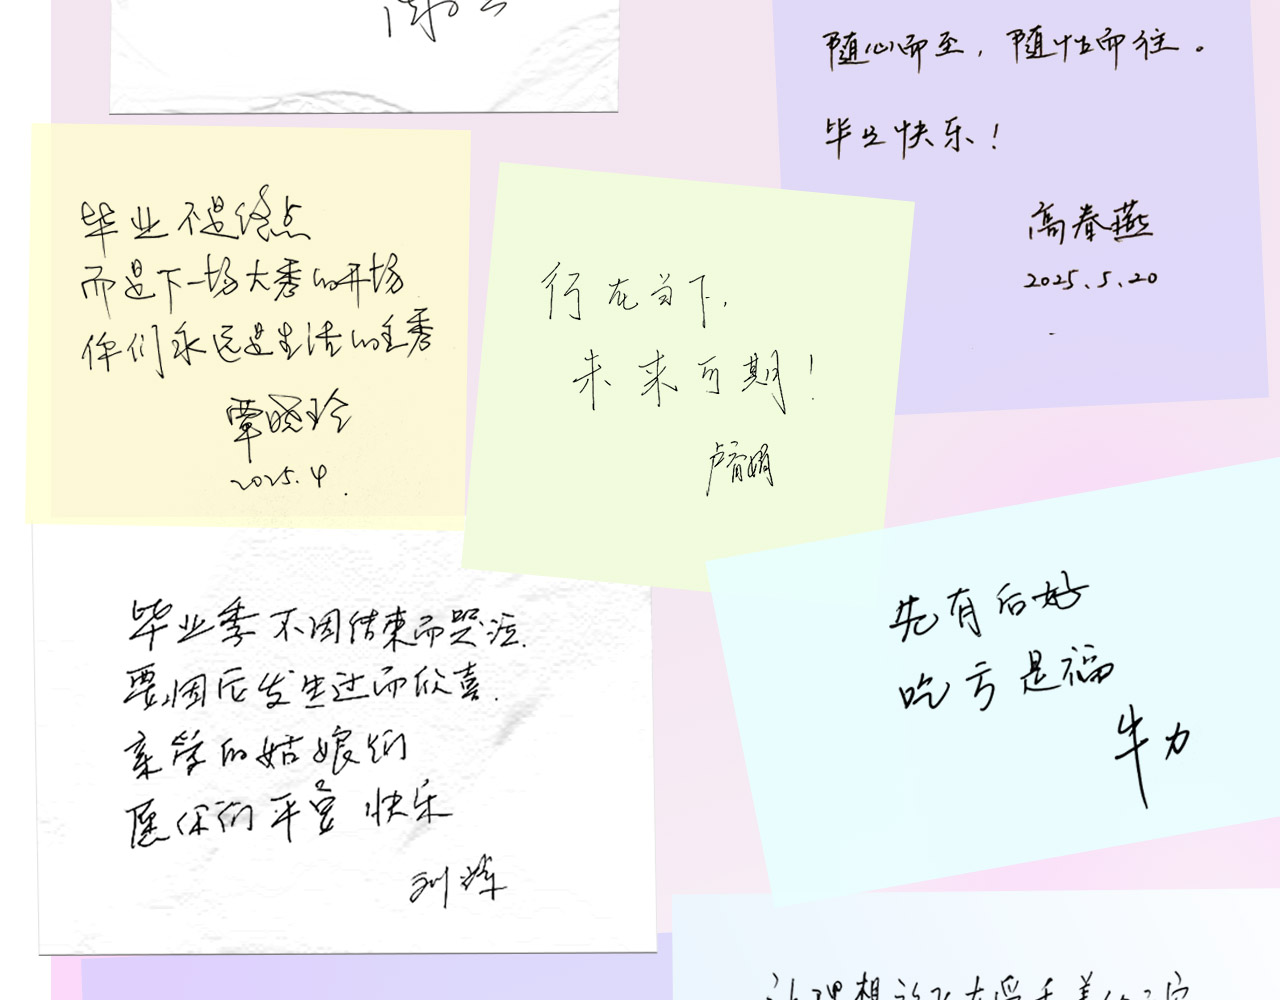 随心而至，随性而往。
毕业快乐！
高春燕
2025.5.20
毕业不是终点
而是下一场大秀的开场
你们永远是生活的主秀
覃晓玲
2025.4.
行在当下，
未来可期！
卢
先有后好
吃亏是福
牛力
毕业季不因结束而哭泣.
要因为发生过而欣喜.
亲爱的姑娘们
愿你们平安快乐
刘